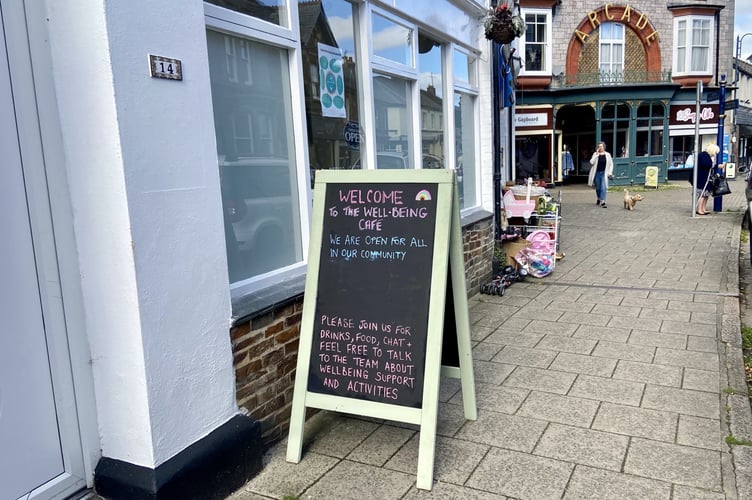 ARCADE
14
OPEN
Cupboard
WELCOME
TO THE WELL-BEING
CAFÉ
WE ARE OPEN FOR ALL
IN OUR COMMUNITY
PLEASE JOIN US FOR
DRINKS, FOOD, CHAT +
FEEL FREE TO TALK
TO THE TEAM ABOUT
WELLBEING SUPPORT
AND ACTIVITIES